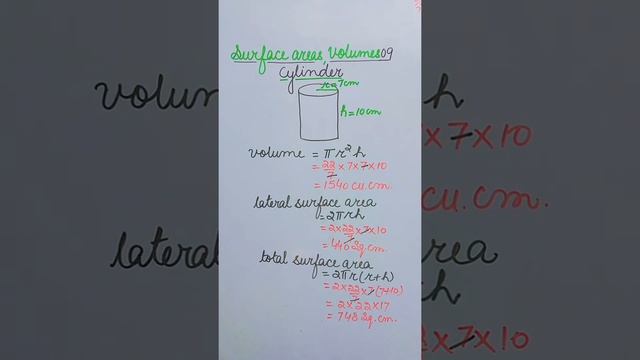 Surface areas, Volumes 09
Cylinder
r=7cm
h=10cm
volume = πr²h
= 22/7 × 7 × 7 × 10
= 1540 cu.cm.
lateral surface area
= 2πrh
= 2 × 22/7 × 7 × 10
= 440 sq.cm.
total surface area
= 2πr(r+h)
= 2 × 22/7 × 7 (7+10)
= 2 × 22 × 17
= 748 sq.cm.